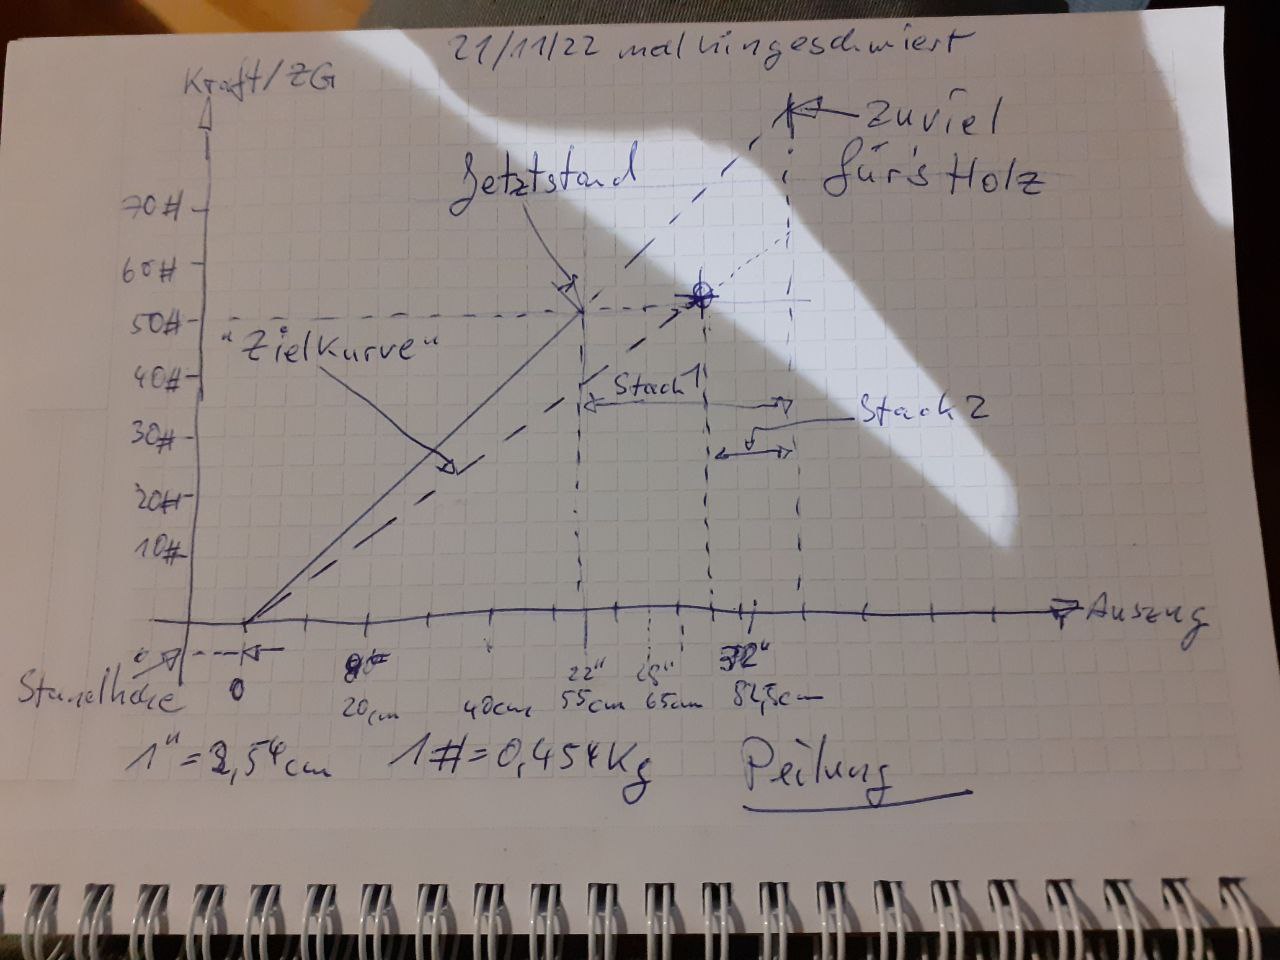 21/11/22 mal hingeschmiert
Kraft/ZG
Zuviel
für's Holz
Jetztstand
70#
60#
50#
"Zielkurve"
40#
Stack 1
Stack 2
30#
20#
10#
Auszug
0
Standhöhe
0
22"
32"
20cm
40cm
55cm
65cm
1" = 2,54cm
1# = 0,454Kg
Peilung